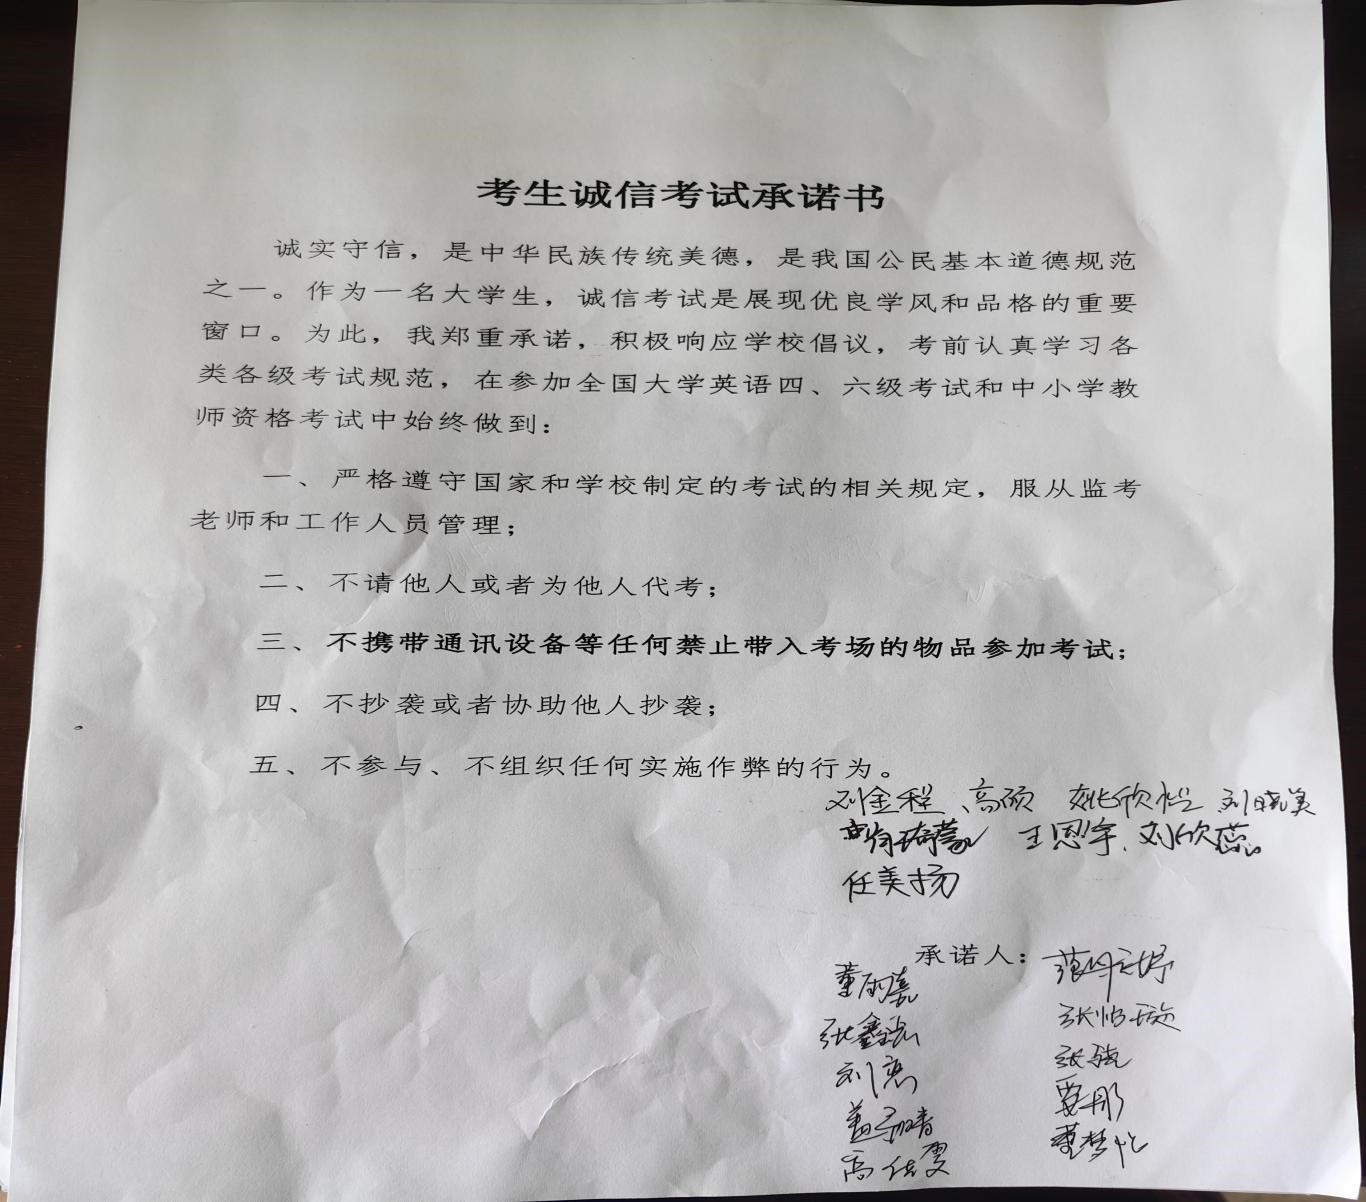 考生诚信考试承诺书
诚实守信，是中华民族传统美德，是我国公民基本道德规范
之一。作为一名大学生，诚信考试是展现优良学风和品格的重要
窗口。为此，我郑重承诺，积极响应学校倡议，考前认真学习各
类各级考试规范，在参加全国大学英语四、六级考试和中小学教
师资格考试中始终做到：
一、严格遵守国家和学校制定的考试的相关规定，服从监考
老师和工作人员管理；
二、不请他人或者为他人代考；
三、不携带通讯设备等任何禁止带入考场的物品参加考试；
四、不抄袭或者协助他人抄袭；
五、不参与、不组织任何实施作弊的行为。
刘金程、高硕 姚欣 刘晓美
王恩宇、刘欣蕊
任美扬
承诺人：
董雨嘉
张鑫
刘惠
董梦忆